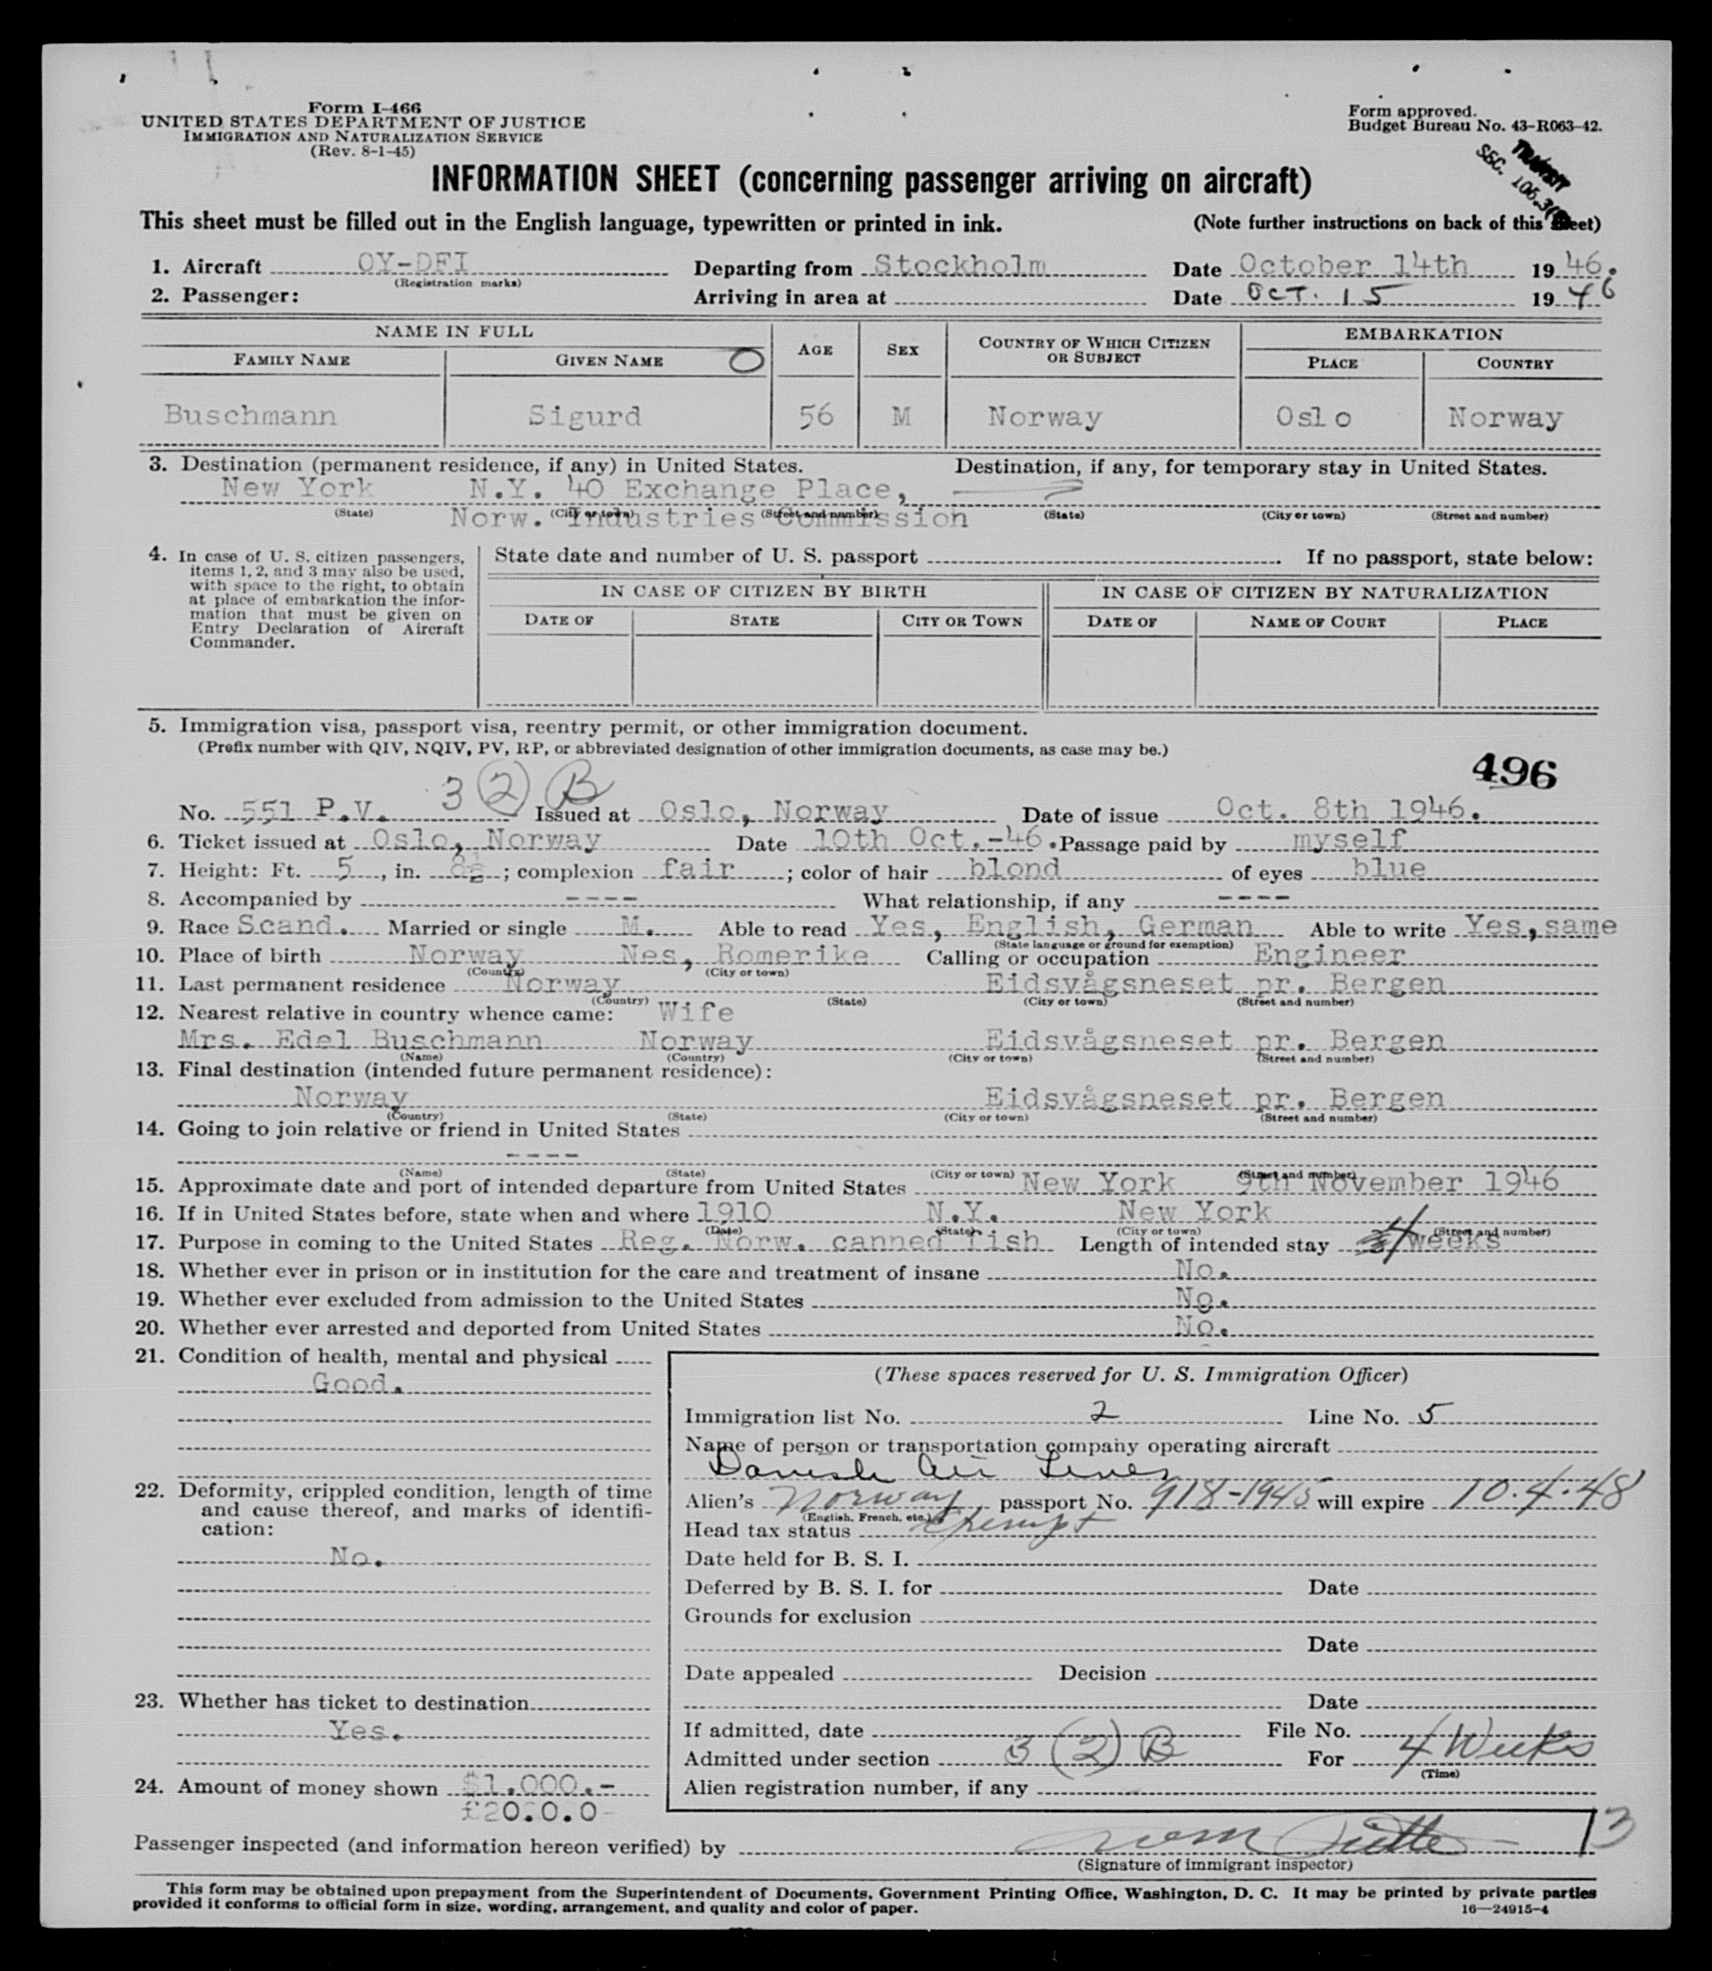 Form I-466
UNITED STATES DEPARTMENT OF JUSTICE
IMMIGRATION AND NATURALIZATION SERVICE
(Rev. 8-1-45)
Form approved.
Budget Bureau No. 43-R063-42.
TRANSIT
SEC. 106.3(
INFORMATION SHEET (concerning passenger arriving on aircraft)
This sheet must be filled out in the English language, typewritten or printed in ink. (Note further instructions on back of this sheet)
1. Aircraft OY-DFI Departing from Stockholm Date October 14th 1946.
(Registration marks)
2. Passenger: Arriving in area at Date OCT. 15 1946
NAME IN FULL AGE SEX COUNTRY OF WHICH CITIZEN OR SUBJECT EMBARKATION
FAMILY NAME GIVEN NAME PLACE COUNTRY
Buschmann Sigurd 56 M Norway Oslo Norway
3. Destination (permanent residence, if any) in United States. Destination, if any, for temporary stay in United States.
New York N.Y. 40 Exchange Place,
(State) (City or town) (Street and number) (State) (City or town) (Street and number)
Norw. Industries Commission
4. In case of U. S. citizen passengers, items 1, 2, and 3 may also be used, with space to the right, to obtain at place of embarkation the information that must be given on Entry Declaration of Aircraft Commander.
State date and number of U. S. passport If no passport, state below:
IN CASE OF CITIZEN BY BIRTH IN CASE OF CITIZEN BY NATURALIZATION
DATE OF STATE CITY OR TOWN DATE OF NAME OF COURT PLACE
5. Immigration visa, passport visa, reentry permit, or other immigration document.
(Prefix number with QIV, NQIV, PV, RP, or abbreviated designation of other immigration documents, as case may be.)
496
3 (2) B
No. 551 P.V. Issued at Oslo, Norway Date of issue Oct. 8th 1946.
6. Ticket issued at Oslo, Norway Date 10th Oct.-46. Passage paid by myself
7. Height: Ft. 5, in. 8½; complexion fair; color of hair blond of eyes blue
8. Accompanied by ---- What relationship, if any ----
9. Race Scand. Married or single M. Able to read Yes, English, German Able to write Yes, same
(State language or ground for exemption)
10. Place of birth Norway Nes, Romerike Calling or occupation Engineer
(Country) (City or town)
11. Last permanent residence Norway Eidsvågsneset pr. Bergen
(Country) (State) (City or town) (Street and number)
12. Nearest relative in country whence came: Wife
Mrs. Edel Buschmann Norway Eidsvågsneset pr. Bergen
(Name) (Country) (City or town) (Street and number)
13. Final destination (intended future permanent residence):
Norway Eidsvågsneset pr. Bergen
(Country) (State) (City or town) (Street and number)
14. Going to join relative or friend in United States
----
(Name) (State) (City or town) (Street and number)
15. Approximate date and port of intended departure from United States New York 9th November 1946
16. If in United States before, state when and where 1910 N.Y. New York
(Date) (State) (City or town) (Street and number)
17. Purpose in coming to the United States Reg. Norw. canned fish Length of intended stay 4 weeks
18. Whether ever in prison or in institution for the care and treatment of insane No.
19. Whether ever excluded from admission to the United States No.
20. Whether ever arrested and deported from United States No.
21. Condition of health, mental and physical
Good.
22. Deformity, crippled condition, length of time and cause thereof, and marks of identification:
No.
23. Whether has ticket to destination
Yes.
24. Amount of money shown $1.000.-
£20.0.0-
(These spaces reserved for U. S. Immigration Officer)
Immigration list No. 2 Line No. 5
Name of person or transportation company operating aircraft
Danish Air Lines
Alien's Norway passport No. 918-1945 will expire 10.4.48
(English, French, etc.)
Head tax status Exempt
Date held for B. S. I.
Deferred by B. S. I. for Date
Grounds for exclusion
Date
Date appealed Decision
Date
If admitted, date File No.
Admitted under section 3 (2) B For 4 Weeks
(Time)
Alien registration number, if any
13
Passenger inspected (and information hereon verified) by
(Signature of immigrant inspector)
This form may be obtained upon prepayment from the Superintendent of Documents, Government Printing Office, Washington, D. C. It may be printed by private parties
provided it conforms to official form in size, wording, arrangement, and quality and color of paper. 16—24915-4